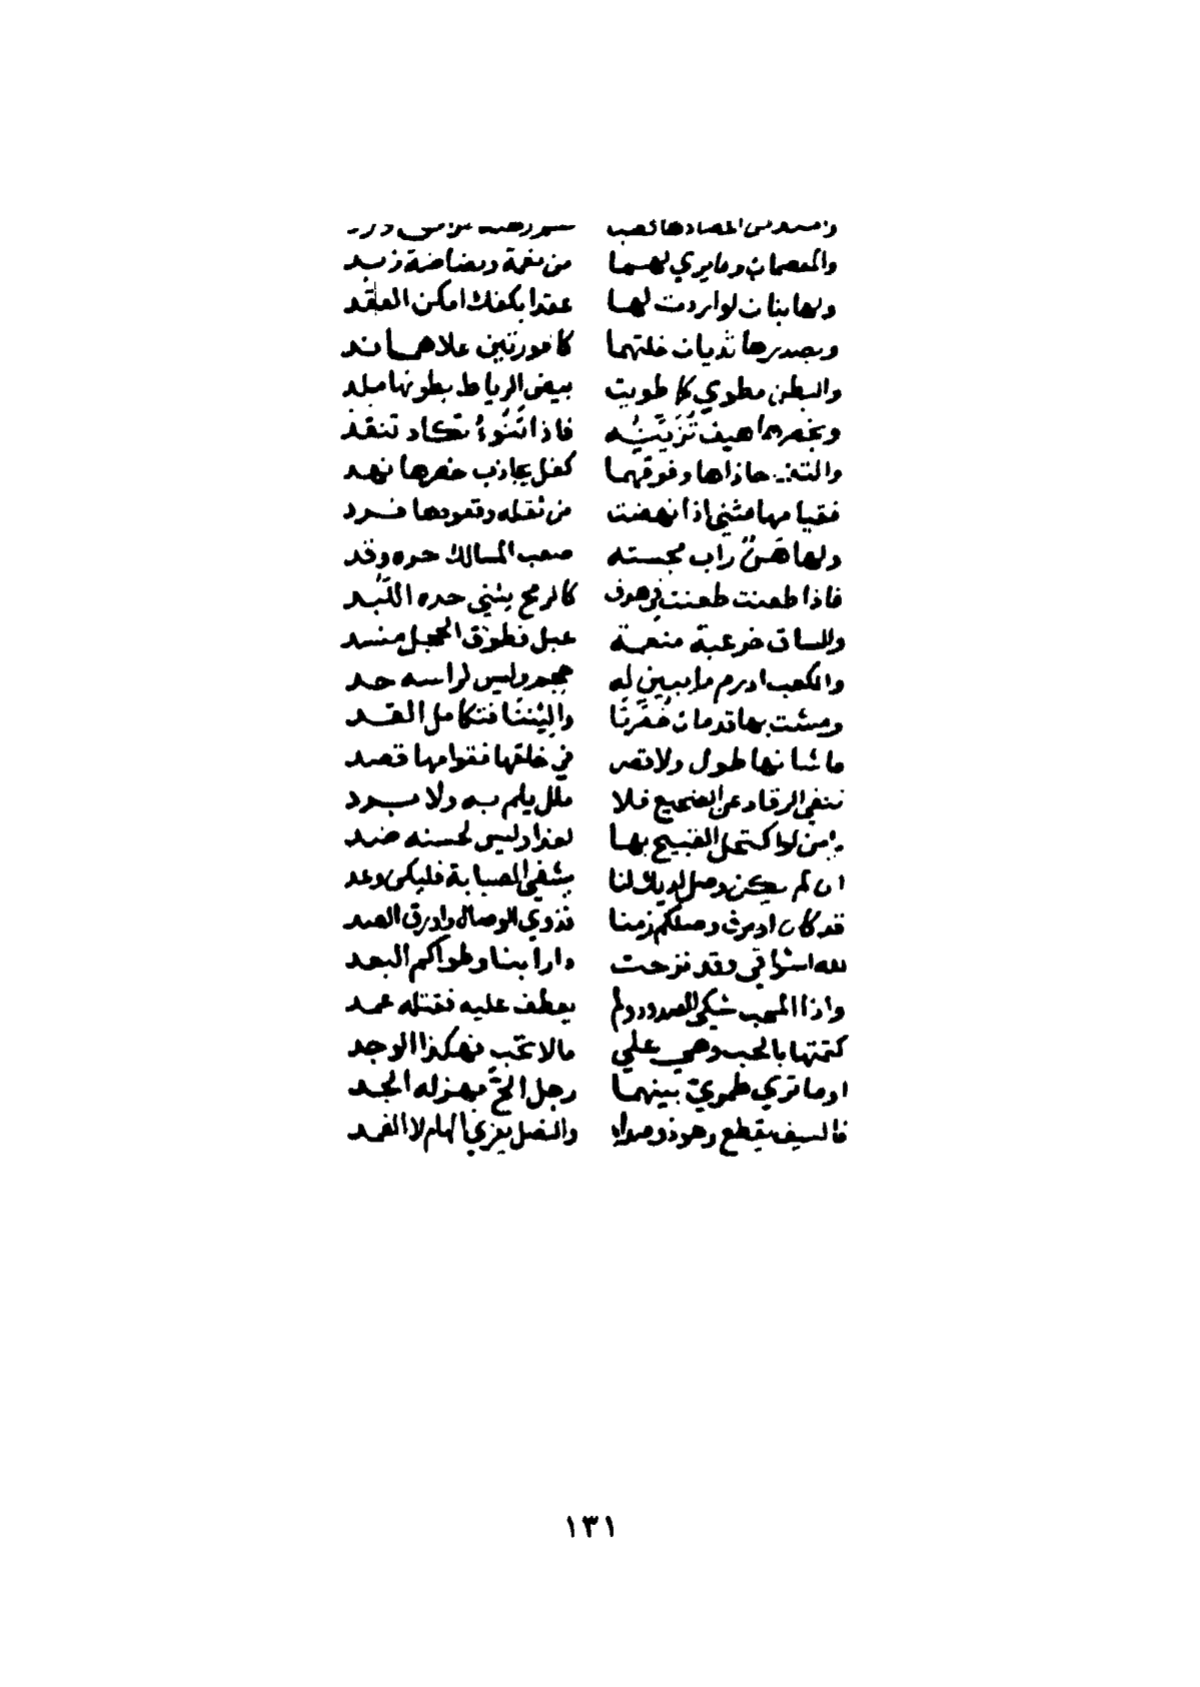 وامتد من اعضادها قصب
والمعصمان وما يري لهما من نعمة وبضاضة زند
ولها بنان لو اردت لها عقدا بكفك امكن العقد
وبصدرها ثديان خلتهما كافورتين علاهما ند
والبطن مطوي كما طويت بيض الرياط بطونها ملد
وبخصرها هيف تُزَيِّنُه فاذا تَنُوءُ تكاد تنقد
والتف حاذاها وفوقهما كفل يجاذب خصرها نهد
فقيامها مثني اذا نهضت من ثقله وقعودها فرد
ولها هَنٌ راب مجسته صعب المسالك حره وقد
فاذا طعنت طعنت في كالرمح يثني حده اللبد
والساق خرعبة منعمة عبل فطوق الحجل منسد
والكعب ادرم ما يبين له حجم وليس لراسه حد
ومشت بها قدمان خُصِّرتا واليُنتا فتكامل القد
ما شانها طول ولا قصر في خلقها فقوامها قصد
تنفي الرقاد عن الضجيع فلا ملل يلم به ولا برد
يامن لو اكتحل القبيح بها لغدا وليس لحسنه ضد
ان لم يكن وصل لديك لنا يشفي الصبابة فليكن وعد
قد كان اورث وصلكم زمنا فذوي الوصال واورق الصد
لله اشواقي وقد نزحت دارا بنا وطواكم البعد
واذا المحب شكي الصدود ولم يعطف عليه فقتله عمد
كتمتها بالحب وهي علي مالا تحب فهكذا الوجد
اوما تري طمري بينهما رجل الح بهزله الجد
فالسيف يقطع وهو ذو والنصل يفري الهام لا الغمد
١٣١